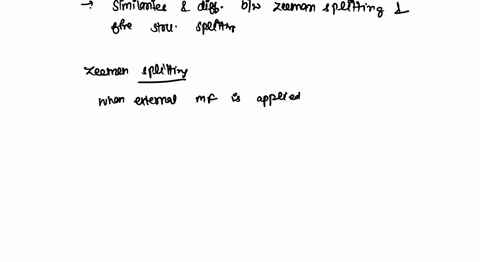 → Similarities & diff. b/w zeeman splitting &
fine stru. splitting
zeeman splitting
when external MF is applied